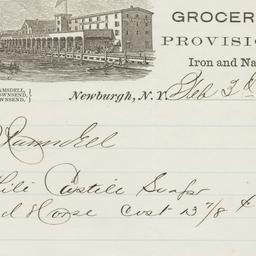 GROCER
PROVISIO
Iron and Na
AMSDELL,
OWNSEND,
OWNSEND.
Newburgh, N.Y. Feb 3
Ramsdell
Castile Soap
d Horse Cost 13 7/8